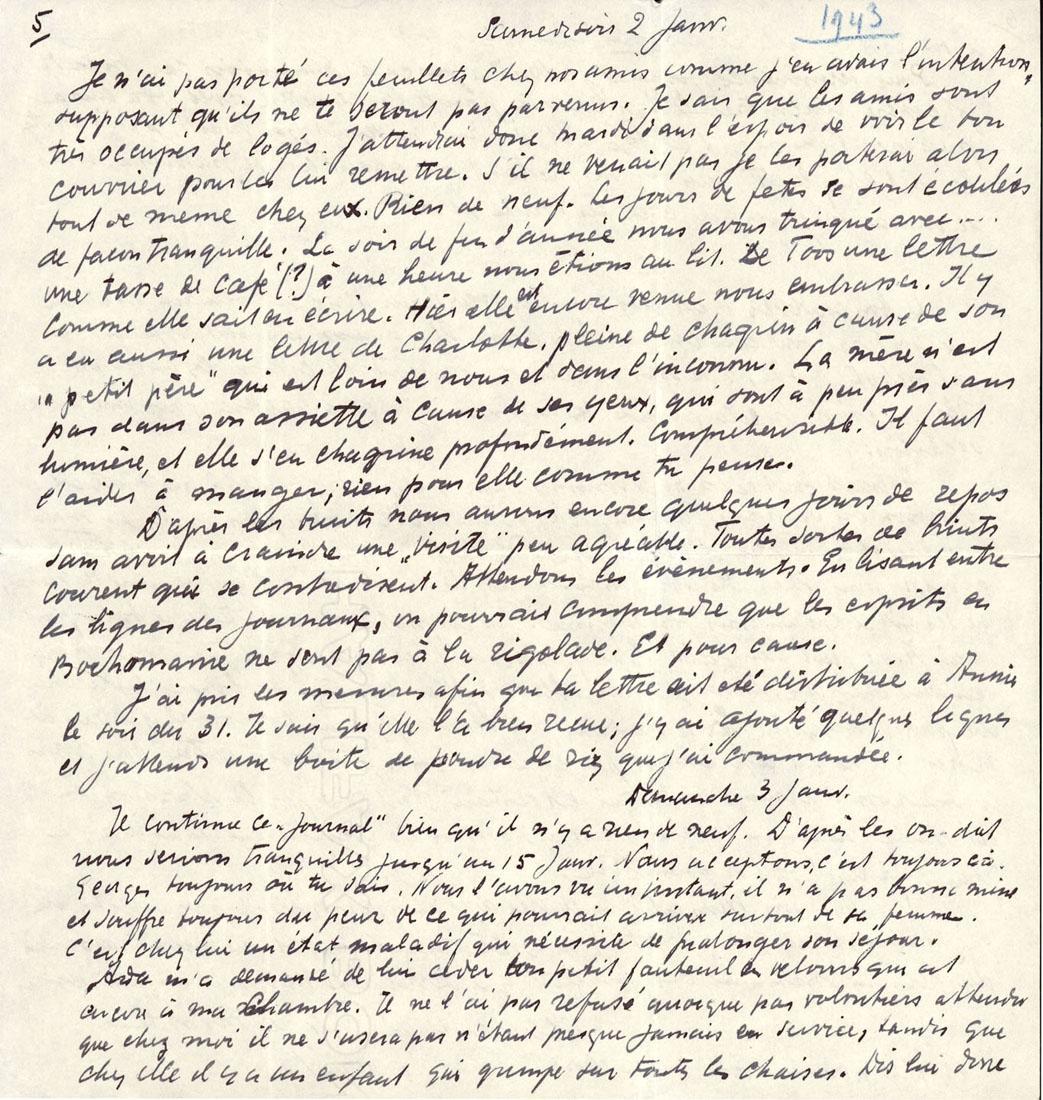 5
Samedi soir 2 Janv. 1943
Je n'ai pas porté ces feuillets chez nos amis comme j'en avais l'intention,
supposant qu'ils ne te seront pas parvenus. Je sais que les amis sont
très occupés de logés. J'attendrai donc mardi dans l'espoir de voir le bon
courrier pour les lui remettre. S'il ne venait pas je les porterai alors
tout de meme chez eux. Rien de neuf. Les jours de fetes se sont écoulées
de façon tranquille. La soir de fin d'année nous avons trinqué avec....
une tasse de café (?) à une heure nous étions au lit. De Toos une lettre
comme elle sait en écrire. Hier elle est encore venue nous embrasser. Il y
a eu aussi une lettre de Charlotte, pleine de chagrin à cause de son
"petit père" qui est loin de nous et dans l'inconnu. La mère n'est
pas dans son assiette à cause de ses yeux, qui sont à peu près sans
lumière, et elle s'en chagrine profondément. Compréhensible. Il faut
l'aider à manger; rien pour elle comme tu penses.
D'après les bruits nous aurons encore quelques jours de repos
sans avoir à craindre une "visite" peu agréable. Toutes sortes de bruits
courent qui se contredisent. Attendons les événements. En lisant entre
les lignes des journaux, on pourrait comprendre que les esprits en
Bochomanie ne sont pas à la rigolade. Et pour cause.
J'ai pris les mesures afin que ta lettre ait été distribuée à Annie
le soir du 31. Je sais qu'elle l'a bien reçue; j'y ai ajouté quelques lignes
et j'attends une boite de poudre de riz que j'ai commandée.
Dimanche 3 Janv.
Je continue ce "journal" bien qu'il n'y a rien de neuf. D'après les on-dit
nous serions tranquilles jusqu'au 15 Janv. Nous acceptons, c'est toujours cà.
Georges toujours où tu sais. Nous l'avons vu un instant, il n'a pas bonne mine
et souffre toujours du peur de ce qui pourrait arriver surtout de sa femme.
C'est chez lui un état maladif qui nécessite de prolonger son séjour.
Ada m'a demandé de lui céder ton petit fauteuil en velours qui est
encore à ma chambre. Je ne l'ai pas refusé quoique pas volontiers attendu
que chez moi il ne s'usera pas n'étant presque jamais en service, tandis que
chez elle il y a un enfant qui grimpe sur toutes les chaises. Dis lui donc